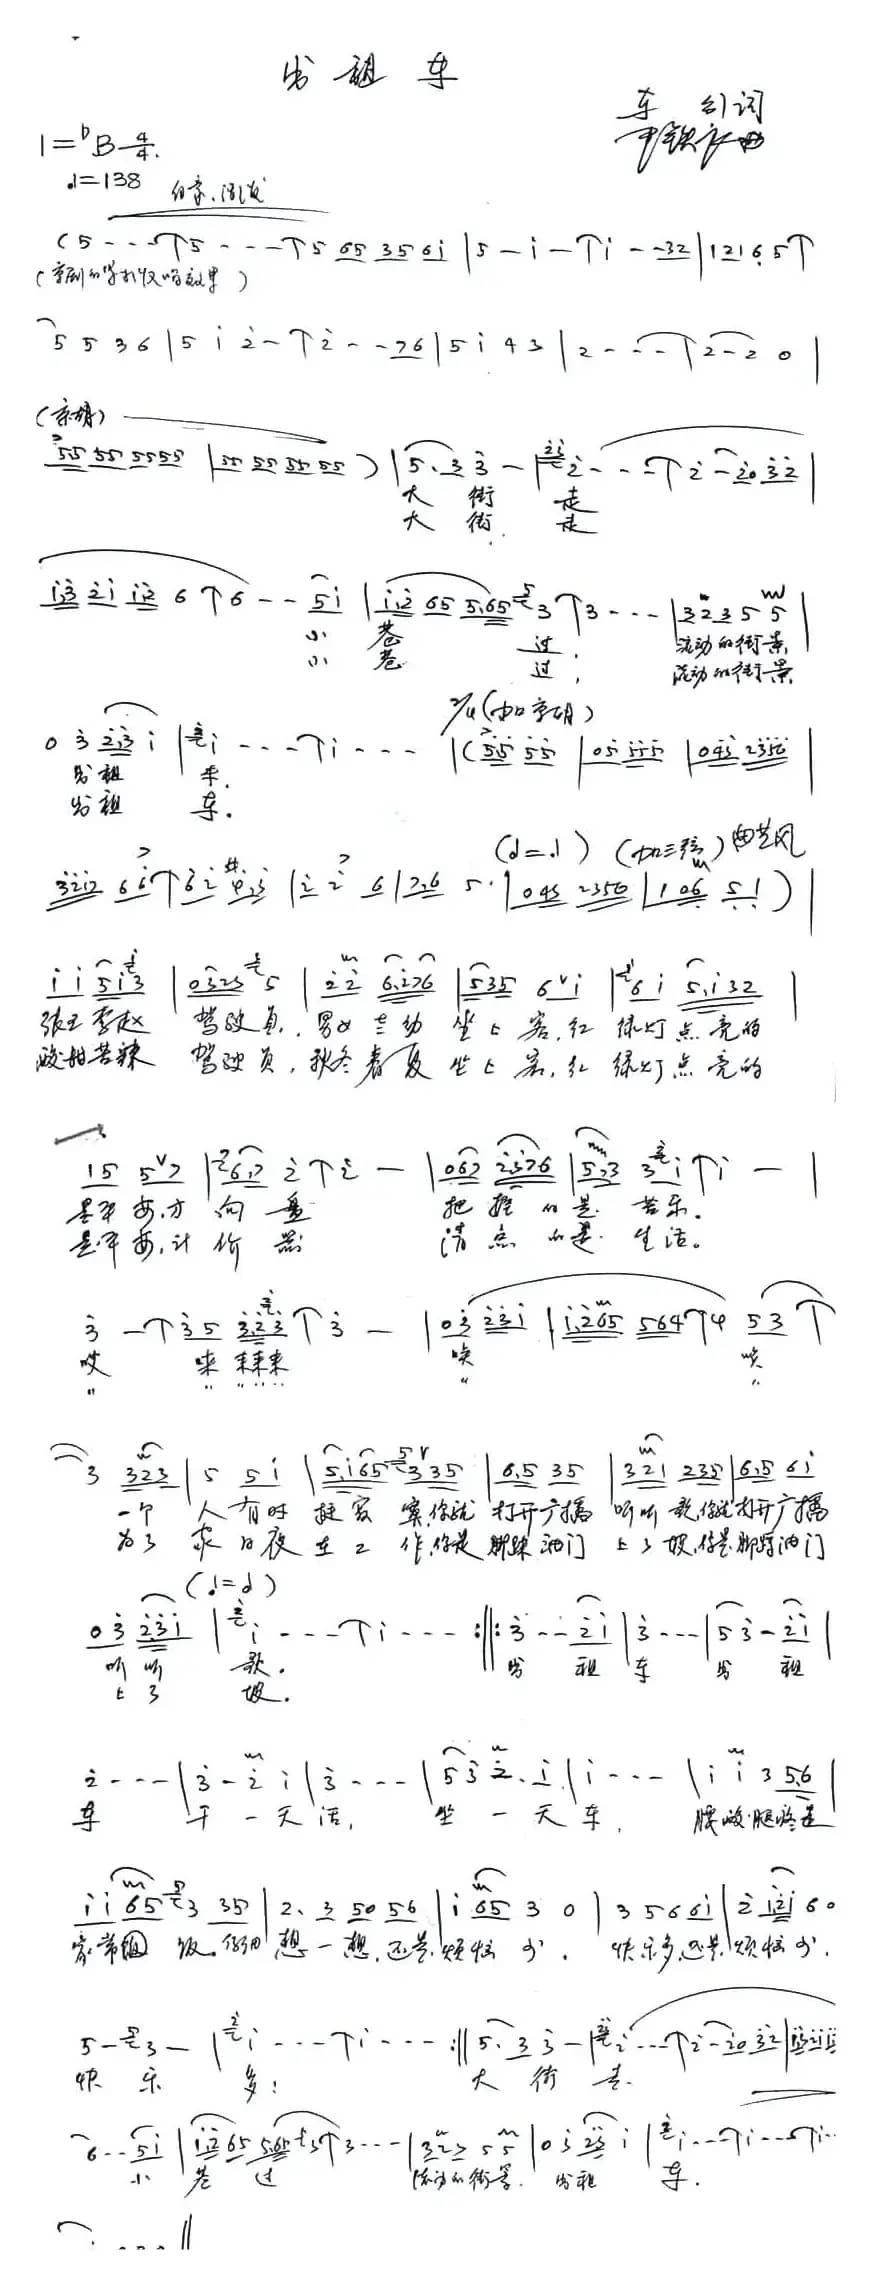 出租车
车 词
曲
1=bB 4/4.
♩=138
(5 - - - 5 - - - 5 65 35 6i | 5 - i - i - - 32 | 121 6 5
5 5 3 6 | 5 i 2 - 2 - - 76 | 5 i 4 3 | 2 - - - 2 - 2 0 |
(京胡)
55 55 5555 | 55 55 55 55 ) | 5. 3 3 - | 2 - - - 2 - 20 32 |
大 街 走
大 街 走
i3 2i i2 6 6 - - 5i | i.2 65 5.65 3 3 - - - | 3 2 3 5 5 |
小 巷 过, 流动的街景
小 巷 过, 流动的街景
2/4 (加京胡)
0 3 2.3 i | i - - - i - - - | (55 55 | 05 555 | 043 2356 |
出租 车.
出租 车.
(加三弦) 曲艺风
3212 6 6 6 2 4.3 | 2 2 6 | 7.6 5. | 043 2356 | 1 06 5 1 ) |
i i 5i3 | 0323 5 | 2 2 6.276 | 535 6 i | 6 i 5.i32 |
张王李赵 驾驶员, 男女老幼 坐上客, 红绿灯点亮的
酸甜苦辣 驾驶员, 秋冬春夏 坐上客, 红绿灯点亮的
15 57 | 6.7 2 2 - | 067 2.376 | 5.3 3 i i - |
是平安, 方向盘 把握的是 苦乐.
是平安, 计价器 清点的是 生活。
3 - 35 323 3 - | 03 231 | i.265 564 4 53
哎 来来来来 唉 唉
3 323 | 5 5i | 5.i65 335 | 6.5 35 | 321 235 | 6.5 6i
一个 人有时挺寂寞, 你就打开广播听听歌, 你就打开广播
为了 家日夜在工作, 你是脚踩油门上了坡, 你是脚踩油门
03 2.3i | i - - - i - - - :||: 3 - - 2i | 3 - - - | 5 3 - 2i |
听听 歌. 出租车 出租
上了 坡.
2 - - - | 3 - 2 i | 3 - - - | 5 3 2. i | i - - - | i i 3 5.6 |
车 干一天活, 坐一天车, 腰酸腿疼是
i i 65 3 35 | 2. 3 50 56 | i 65 3 0 | 3 5 6 6i | 2 i2i 60
家常 饭. 想一想, 还是烦恼少. 快乐多, 还是烦恼少,
5 - 3 - | i - - - i - - - :|| 5. 3 3 - | 2 - - - 2 - 20 32 |
快乐 多; 大街 走.
6 - - 5i | i.2 65 5.65 3 3 - - - | 323 5 5 | 0 3 23 i | i - - - i - - - i - -
小 巷 过 流动的街景. 出租 车.